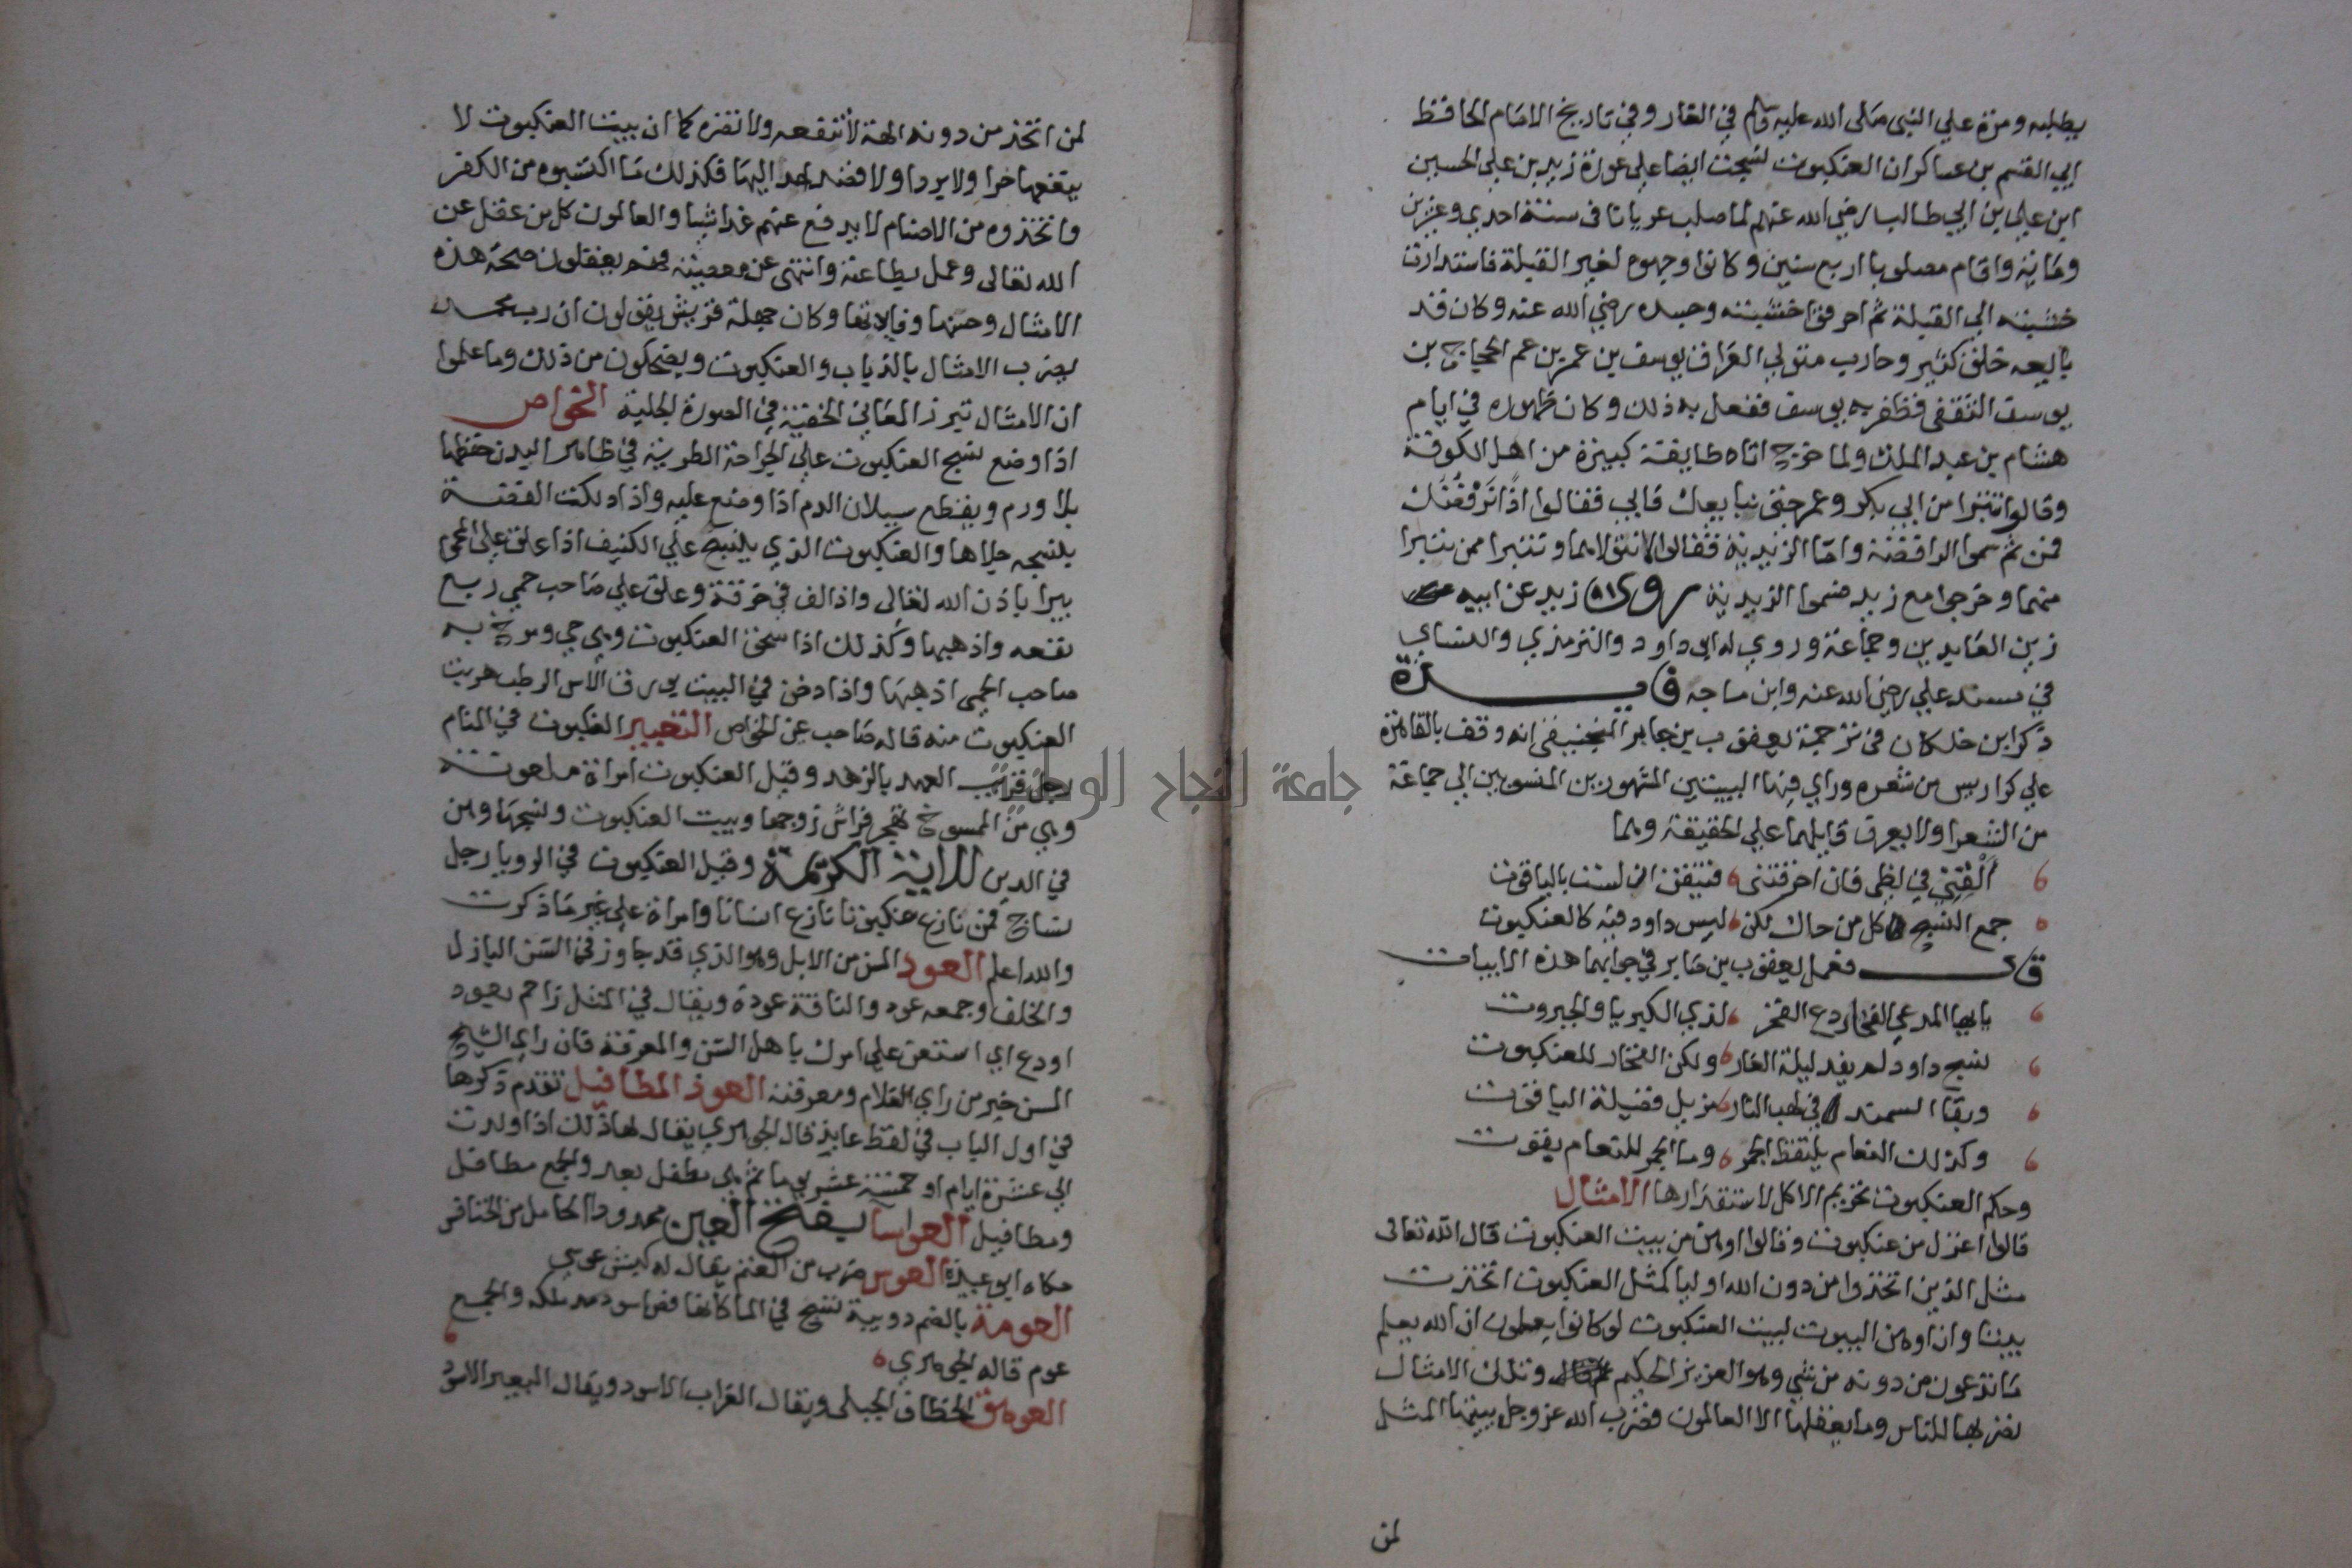 يطلبه ومرة علي النبي صلى الله عليه وسلم في الغار وفي تاريخ الامام الحافظ
ابي القسم بن عساكر ان العنكبوت نسجت ايضا علي عورة زيد بن علي الحسين
ابن علي بن ابي طالب رضي الله عنهم لما صلب عريانا في سنة احدي وعشرين
وماية واقام مصلوبا اربع سنين وكانوا وجهوه لغير القبلة فاستدارت
خشبته الي القبلة ثم احرقوا خشبته وجسده رضي الله عنه وكان قد
بايعه خلق كثير وحارب متولي العراق يوسف بن عمر بن عم الحجاج بن
يوسف الثقفي فظفر به يوسف ففعل به ذلك وكان ظهوره في ايام
هشام بن عبد الملك ولما خرج اتاه طايفة كبيرة من اهل الكوفة
وقالوا تتبرا من ابي بكر وعمر حتي نبايعك فابي فقالوا اذًا نرفضك
فمن ثم سموا الرافضة واما الزيدية فقالوا لانتولاهما ونتبرا ممن يتبرا
منهما وخرجوا مع زيد فسموا الزيدية روي زيد عن ابيه
زين العابدين وجماعة وروي له ابو داود والترمذي والنساي
في مسند علي رضي الله عنه وابن ماجه فايدة
ذكر ابن خلكان في ترجمة يعقوب بن جابر المنجنيقي انه وقف بالقاهرة
علي كراريس من شعره وراي فيها البيتين المشهورين المنسوبين الي جماعة
من الشعرا ولا يعرف قايلهما علي الحقيقة وهما
أَلْقِنِي في لظي فان احرقتني فتيقن ان لست بالياقوت
جمع النسج كل من حاك لكن ليس داود فيه كالعنكبوت
قال فعمل يعقوب بن صابر في جوابهما هذه الابيات
يا ايها المدعي الفخار دع الفخر لذي الكبريا والجبروت
نسج داود لم يفد ليلة الغار ولكن الفخار للعنكبوت
وبقا السمند في لهب النار مزيل فضيلة الياقوت
وكذلك النعام يلتقط الجمر وما الجمر للنعام بقوت
وحكم العنكبوت تحريم الاكل لاستقذارها الامثال
قالوا اغزل من عنكبوت وقالوا اوهن من بيت العنكبوت قال الله تعالى
مثل الذين اتخذوا من دون الله اوليا كمثل العنكبوت اتخذت
بيتا وان اوهن البيوت لبيت العنكبوت لو كانوا يعلمون ان الله يعلم
ما تدعون من دونه من شي وهو العزيز الحكيم وتلك الامثال
نضربها للناس وما يعقلها الا العالمون فضرب الله عز وجل بيتها المثل
لمن
لمن اتخذ من دونه الهة لا تنفعه ولا تضره كما ان بيت العنكبوت لا
يقيها حرا ولا بردا ولا قصد احد اليها فكذلك ما اكتسبوه من الكفر
واتخذوه من الاصنام لا يدفع عنهم غدا شيا والعالمون كل من عقل عن
الله تعالى وعمل بطاعته وانتهي عن معصيته فهم يعقلون صحة هذه
الامثال وحسنها وفايدتها وكان جهلة قريش يقولون ان رب محمد
يضرب الامثال بالذباب والعنكبوت ويضحكون من ذلك وما علموا
ان الامثال تبرز المعاني الخفية في الصورة الجلية الخواص
اذا وضع نسج العنكبوت علي الجراحة الطرية في ظاهر البدن حفظها
بلا ورم ويقطع سيلان الدم اذا وضع عليه واذا دلكت الفضة
بنسجه جلاها والعنكبوت الذي ينسج علي الكنيف اذا علق علي المحموم
يبرا باذن الله تعالي واذا لف في خرقة وعلق علي صاحب حمي ربع
نفعه واذهبها وكذلك اذا سحق العنكبوت وهي حي ومرخ به
صاحب الحمى اذهبها واذا دخن في البيت بورق الاس الرطب هربت
العنكبوت منه قاله صاحب عين الخواص التعبير العنكبوت في المنام
رجل قريب العهد بالزهد وقيل العنكبوت امراة ملعونة
وهي من المسوخ تهجر فراش زوجها وبيت العنكبوت ونسجها وهن
في الدين للاية الكريمة وقيل العنكبوت في الرويا رجل
نساج فمن نازع عنكبوتا نازع انسانا وامراة علي غير ما ذكرت
والله اعلم العود المسن من الابل وهو الذي قد جاوز في السن البازل
والخلف وجمعه عود والناقة عودة ويقال في المثل زاحم بعود
اودع اي استعن علي امرك باهل السن والمعرفة فان راي الشيخ
المسن خير من راي الغلام ومعرفته العوذ المطافيل تقدم ذكرها
في اول الباب في لفظ عايذ قال الجوهري يقال لها ذلك اذا ولدت
الي عشرة ايام او خمسة عشر يوما ثم هي مطفل بعد والجمع مطافل
ومطافيل العواسا بفتح العين ممدودا الحامل من الخنافس
حكاه ابو عبيدة العوس ضرب من الغنم يقال له كبش عوسي
العومة بالضم دويبة تسبح في الما كانها فص اسود مدملكه والجمع
عوم قاله الجوهري
العوهق الخطاف الجبلي ويقال الغراب الاسود ويقال البعير الاسود
جامعة النجاح الوطنية